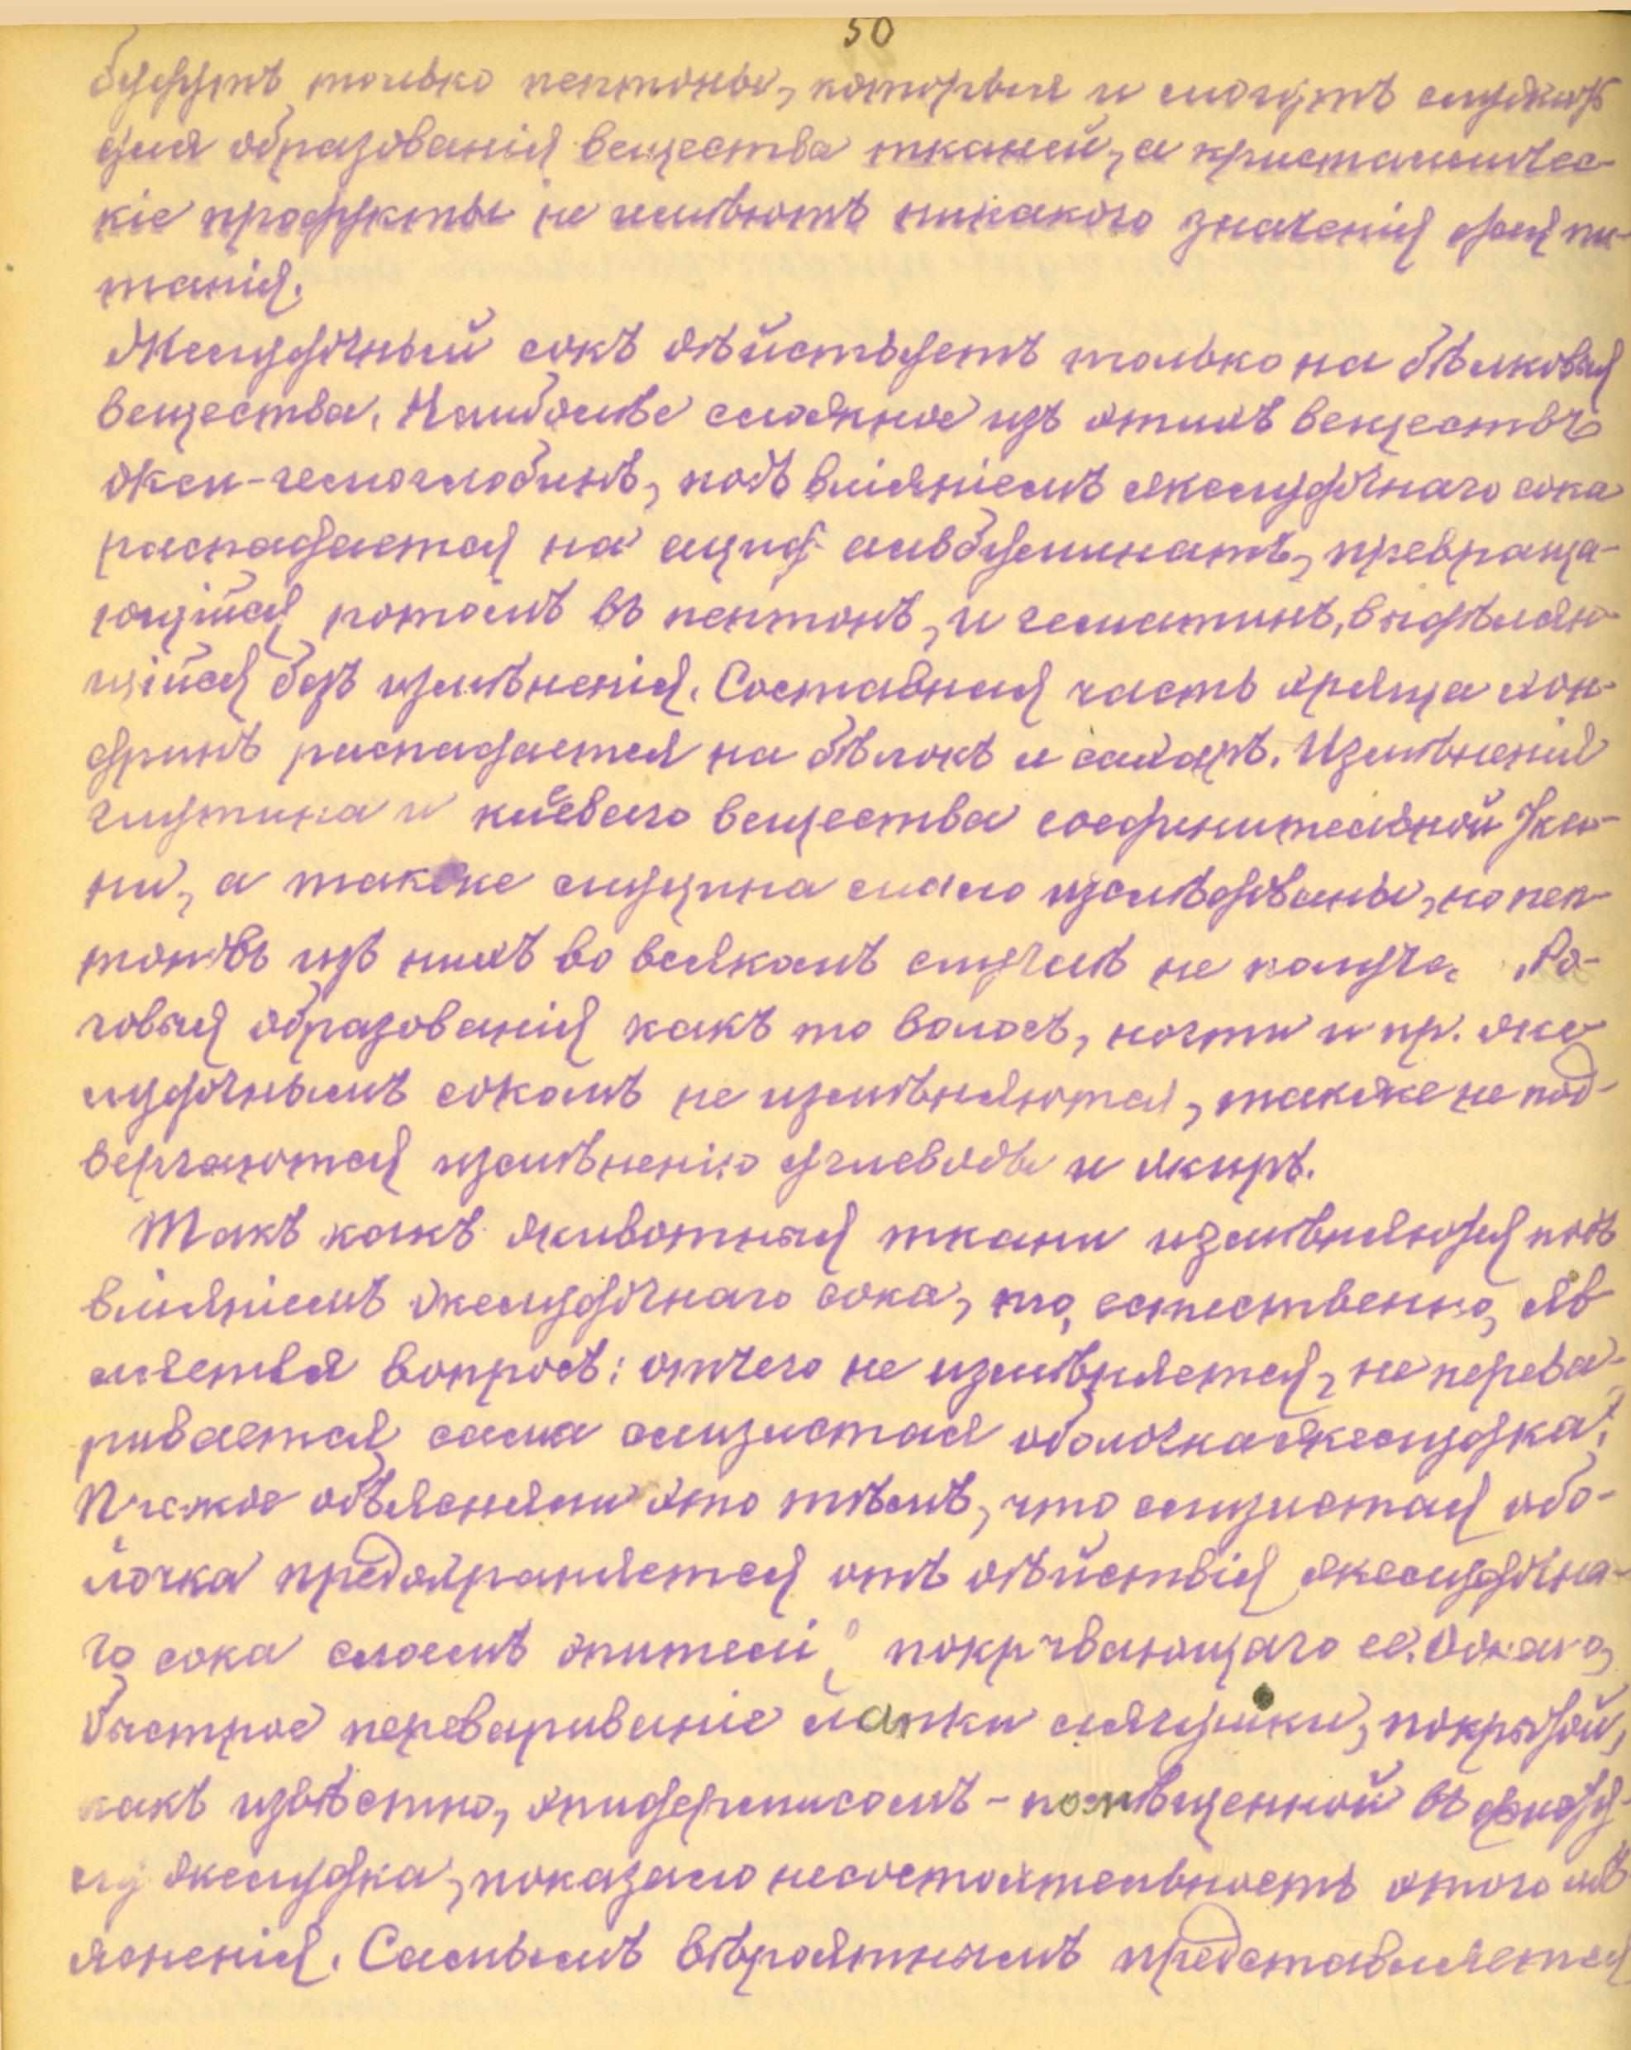 50
будутъ только пептоны, которыя и могутъ служить
для образованія вещества тканей, а кристалличес-
кіе продукты не имѣютъ никакого значенія для пи-
танія.
Желудочный сокъ дѣйствуетъ только на бѣлковыя
вещества. Наиболѣе сложное изъ этихъ веществъ
окси-гемоглобинъ, подъ вліяніемъ желудочнаго сока
распадается на ацид альбуминатъ, превраща-
ющійся потомъ въ пептонъ, и гематинъ, выдѣляю-
щійся безъ измѣненія. Составная часть хряща хон-
дринъ распадается на бѣлокъ и сахаръ. Измѣненія
глутина и клеевого вещества соединительной тка-
ни, а также муцина мало изслѣдованы, но пеп-
тоновъ изъ нихъ во всякомъ случаѣ не получа. Ро-
говыя образованія какъ то волосъ, ногти и пр. же-
лудочнымъ сокомъ не измѣняются, также не под-
вергаются измѣненію углеводы и жиръ.
Такъ какъ животныя ткани измѣняются подъ
вліяніемъ желудочнаго сока, то, естественно, яв
ляется вопросъ: отчего не измѣняется, не перева-
ривается сама слизистая оболочка желудка?
Прежде объясняли это тѣмъ, что слизистая обо-
лочка предохраняется отъ дѣйствія желудочна-
го сока слоемъ эпителія, покрывающаго ее. Однако,
быстрое перевариваніе лапки лягушки, покрытой,
какъ извѣстно, эпидермисомъ - помѣщенной въ фисту-
лу желудка, показало несостоятельность этого объ
ясненія. Самымъ вѣроятнымъ представляется